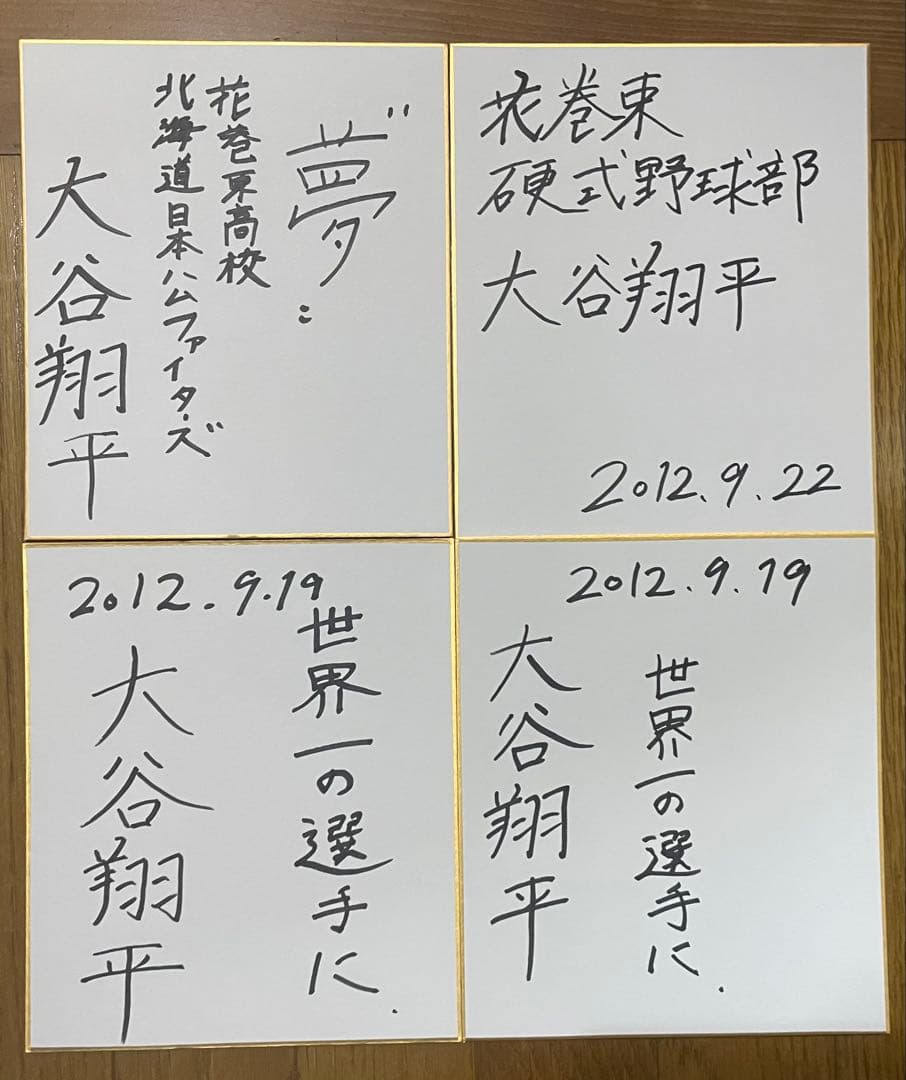 〝夢〟
花巻東高校
北海道日本ハムファイターズ
大谷翔平
花巻東
硬式野球部
大谷翔平
2012.9.22
2012.9.19
世界一の選手に.
大谷翔平
2012.9.19
世界一の選手に.
大谷翔平